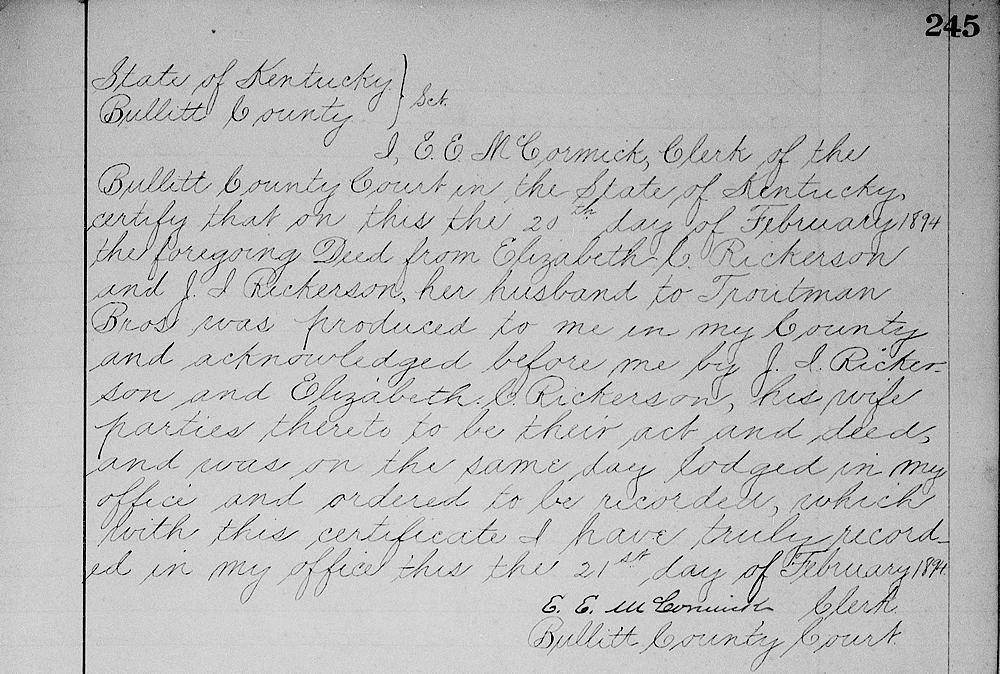 245
State of Kentucky } Sct.
Bullitt County
I, E. E. McCormick, Clerk of the
Bullitt County Court in the State of Kentucky,
certify that on this the 20th day of February 1894
the foregoing Deed from Elizabeth C. Rickerson
and J. I Rickerson, her husband to Troutman
Bros was produced to me in my County
and acknowledged before me by J. I. Ricker-
son and Elizabeth. C. Rickerson, his wife
parties thereto to be their act and deed,
and was on the same day lodged in my
office and ordered to be recorded, which
with this certificate I have truly record-
ed in my office this the 21st day of February 1894
E. E. McCormick Clerk
Bullitt County Court.